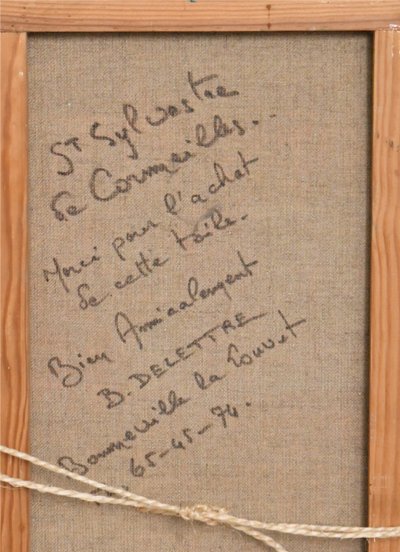 St Sylvestre
de Cormeilles..
Merci pour l'achat
de cette toile.
Bien Amicalement
B. DELETTRE
Bonneville la Louvet
65-45-74.